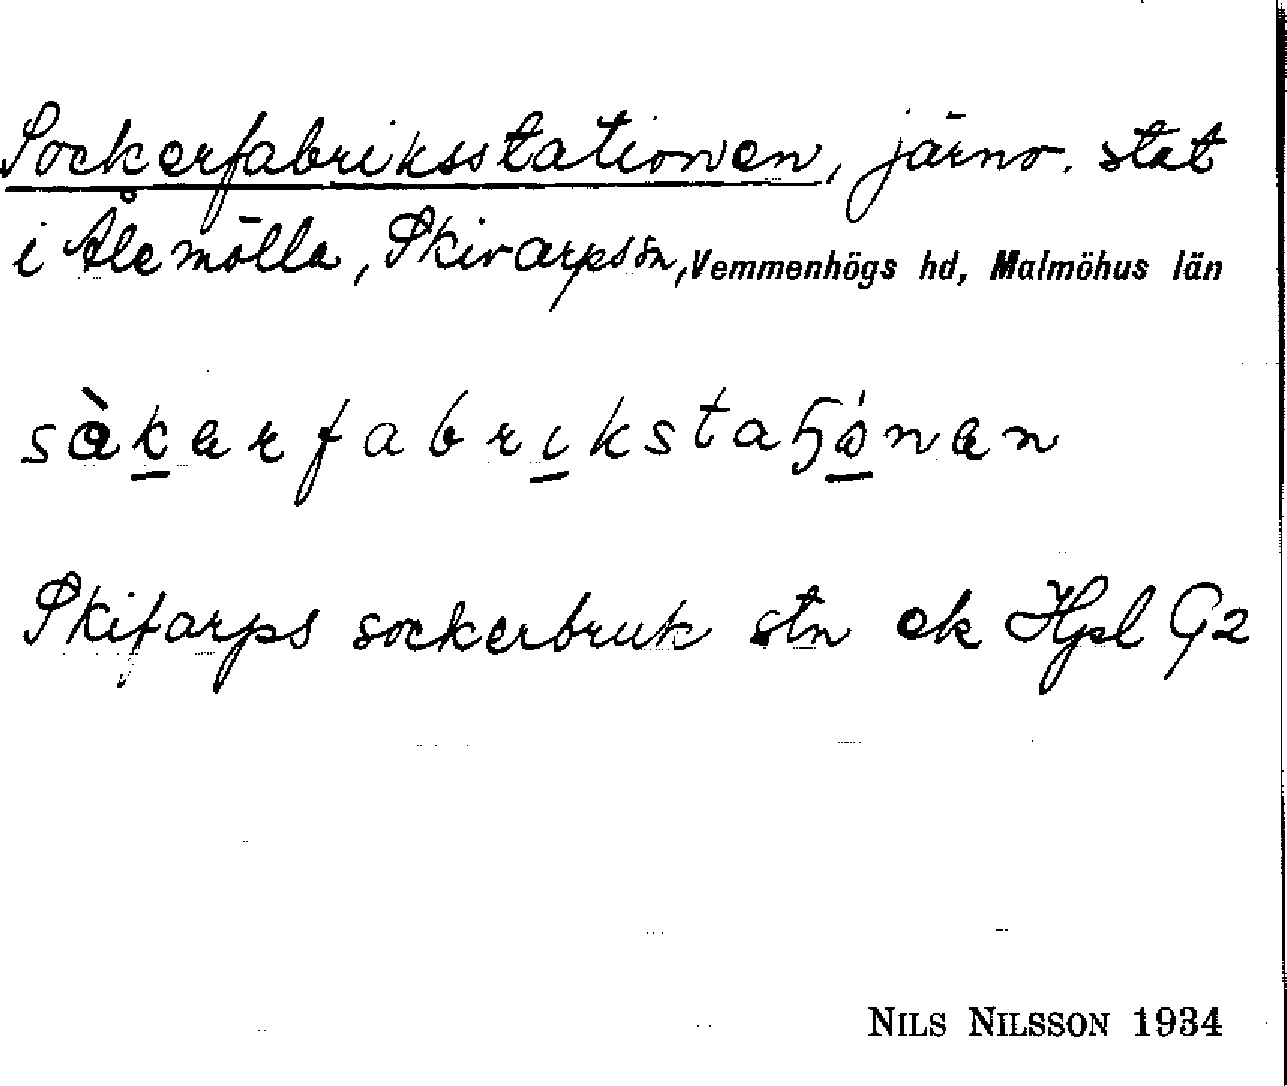 Sockerfabriksstationen, järnv. stat
i Ålemölla, Skivarps sn, Vemmenhögs hd, Malmöhus län
sàkærfabrikstaɧónæn
Skifarps sockerbruk stn ek Hpl G2
NILS NILSSON 1934